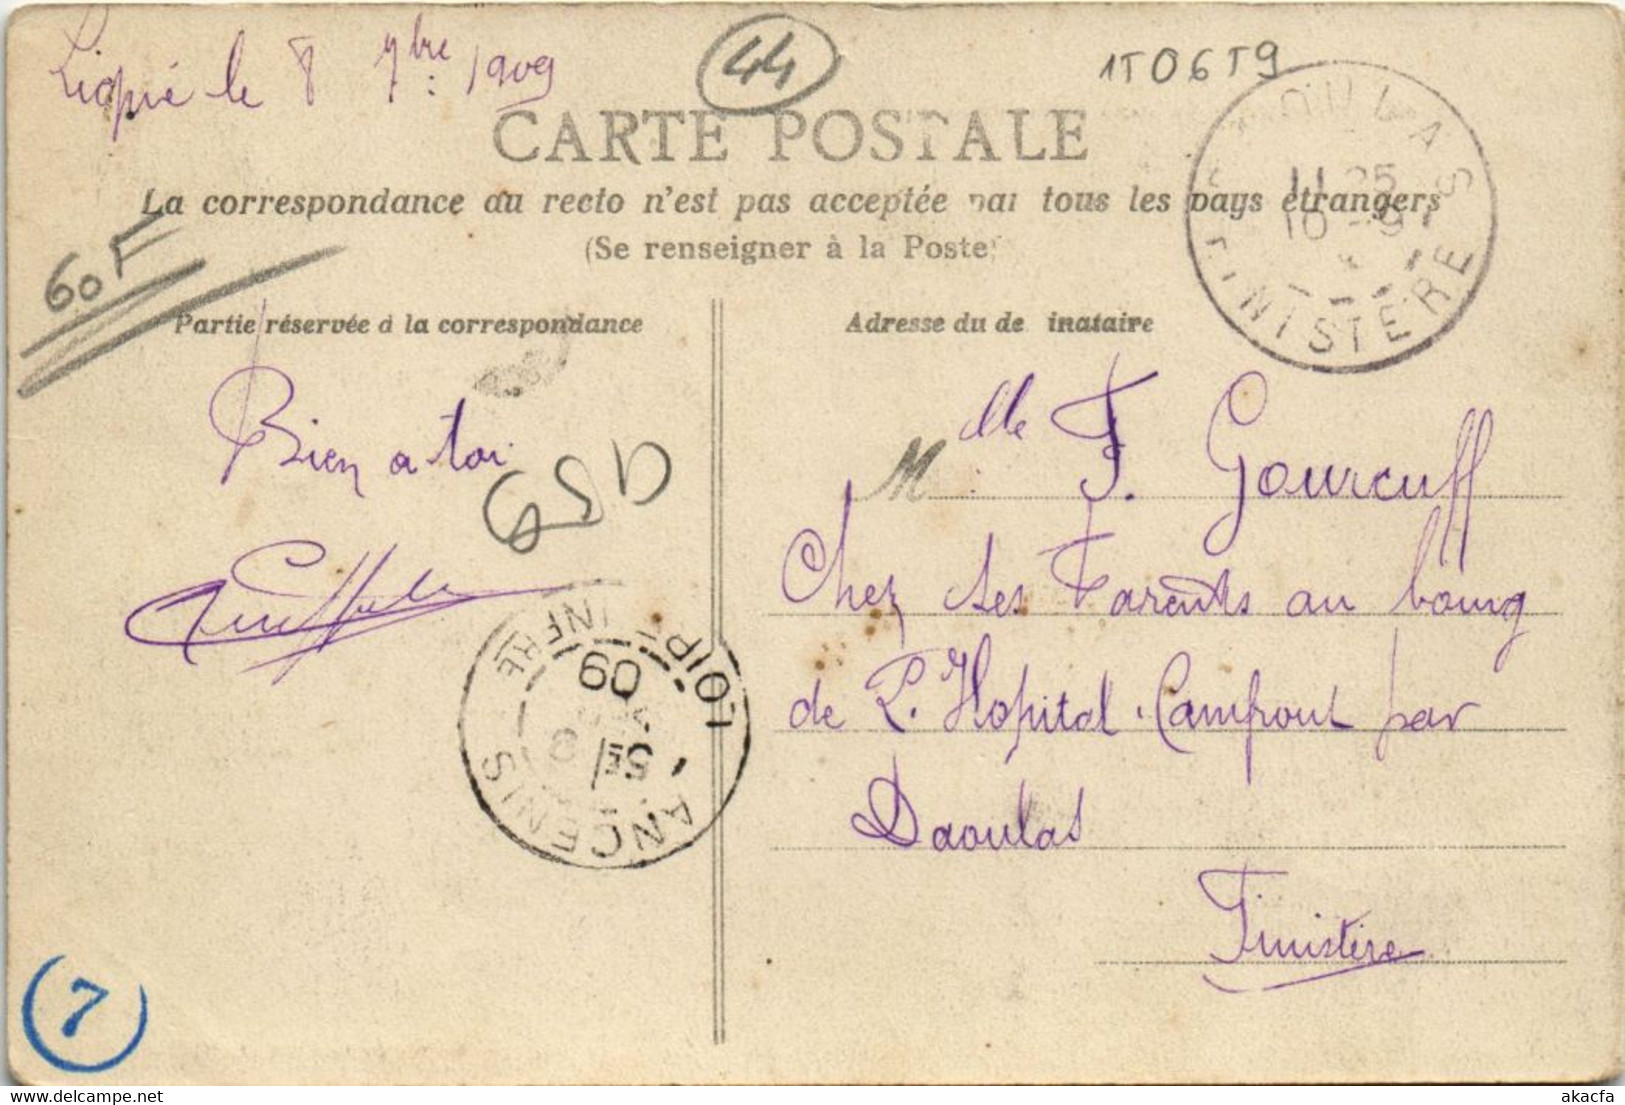 le 8 7bre 1909
44
1T06T9
CARTE POSTALE
La correspondance au recto n'est pas acceptée par tous les pays étrangers
(Se renseigner à la Poste)
60F
Partie réservée à la correspondance
Adresse du destinataire
DAOULAS
11 25
10 - 9
FINISTERE
Bien a toi
Mlle F. Gourcuff
Chez ses Parents au bourg
de L'Hopital-Camfrout par
Daoulas
Finistère
ANCENIS
LOIRE INFRE
8
SE
09
7
Images sur akacfa
akacfa